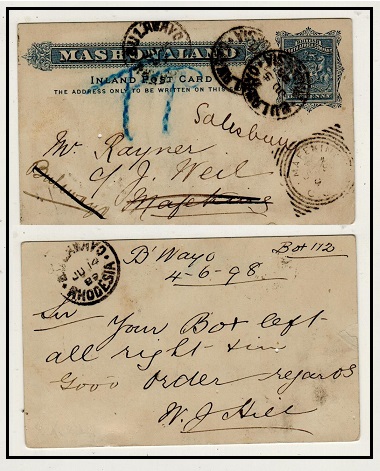 MASHONALAND
INLAND POST CARD
THE ADDRESS ONLY TO BE WRITTEN ON THIS
BULAWAYO
Salisbury
Mr. Rayner
c/o J. Weil
Mafeking
BULAWAYO
RHODESIA
B'Wayo
Box 112
4-6-98
Sir Your Box left
all right & in
Good order regards
W. J. Hill